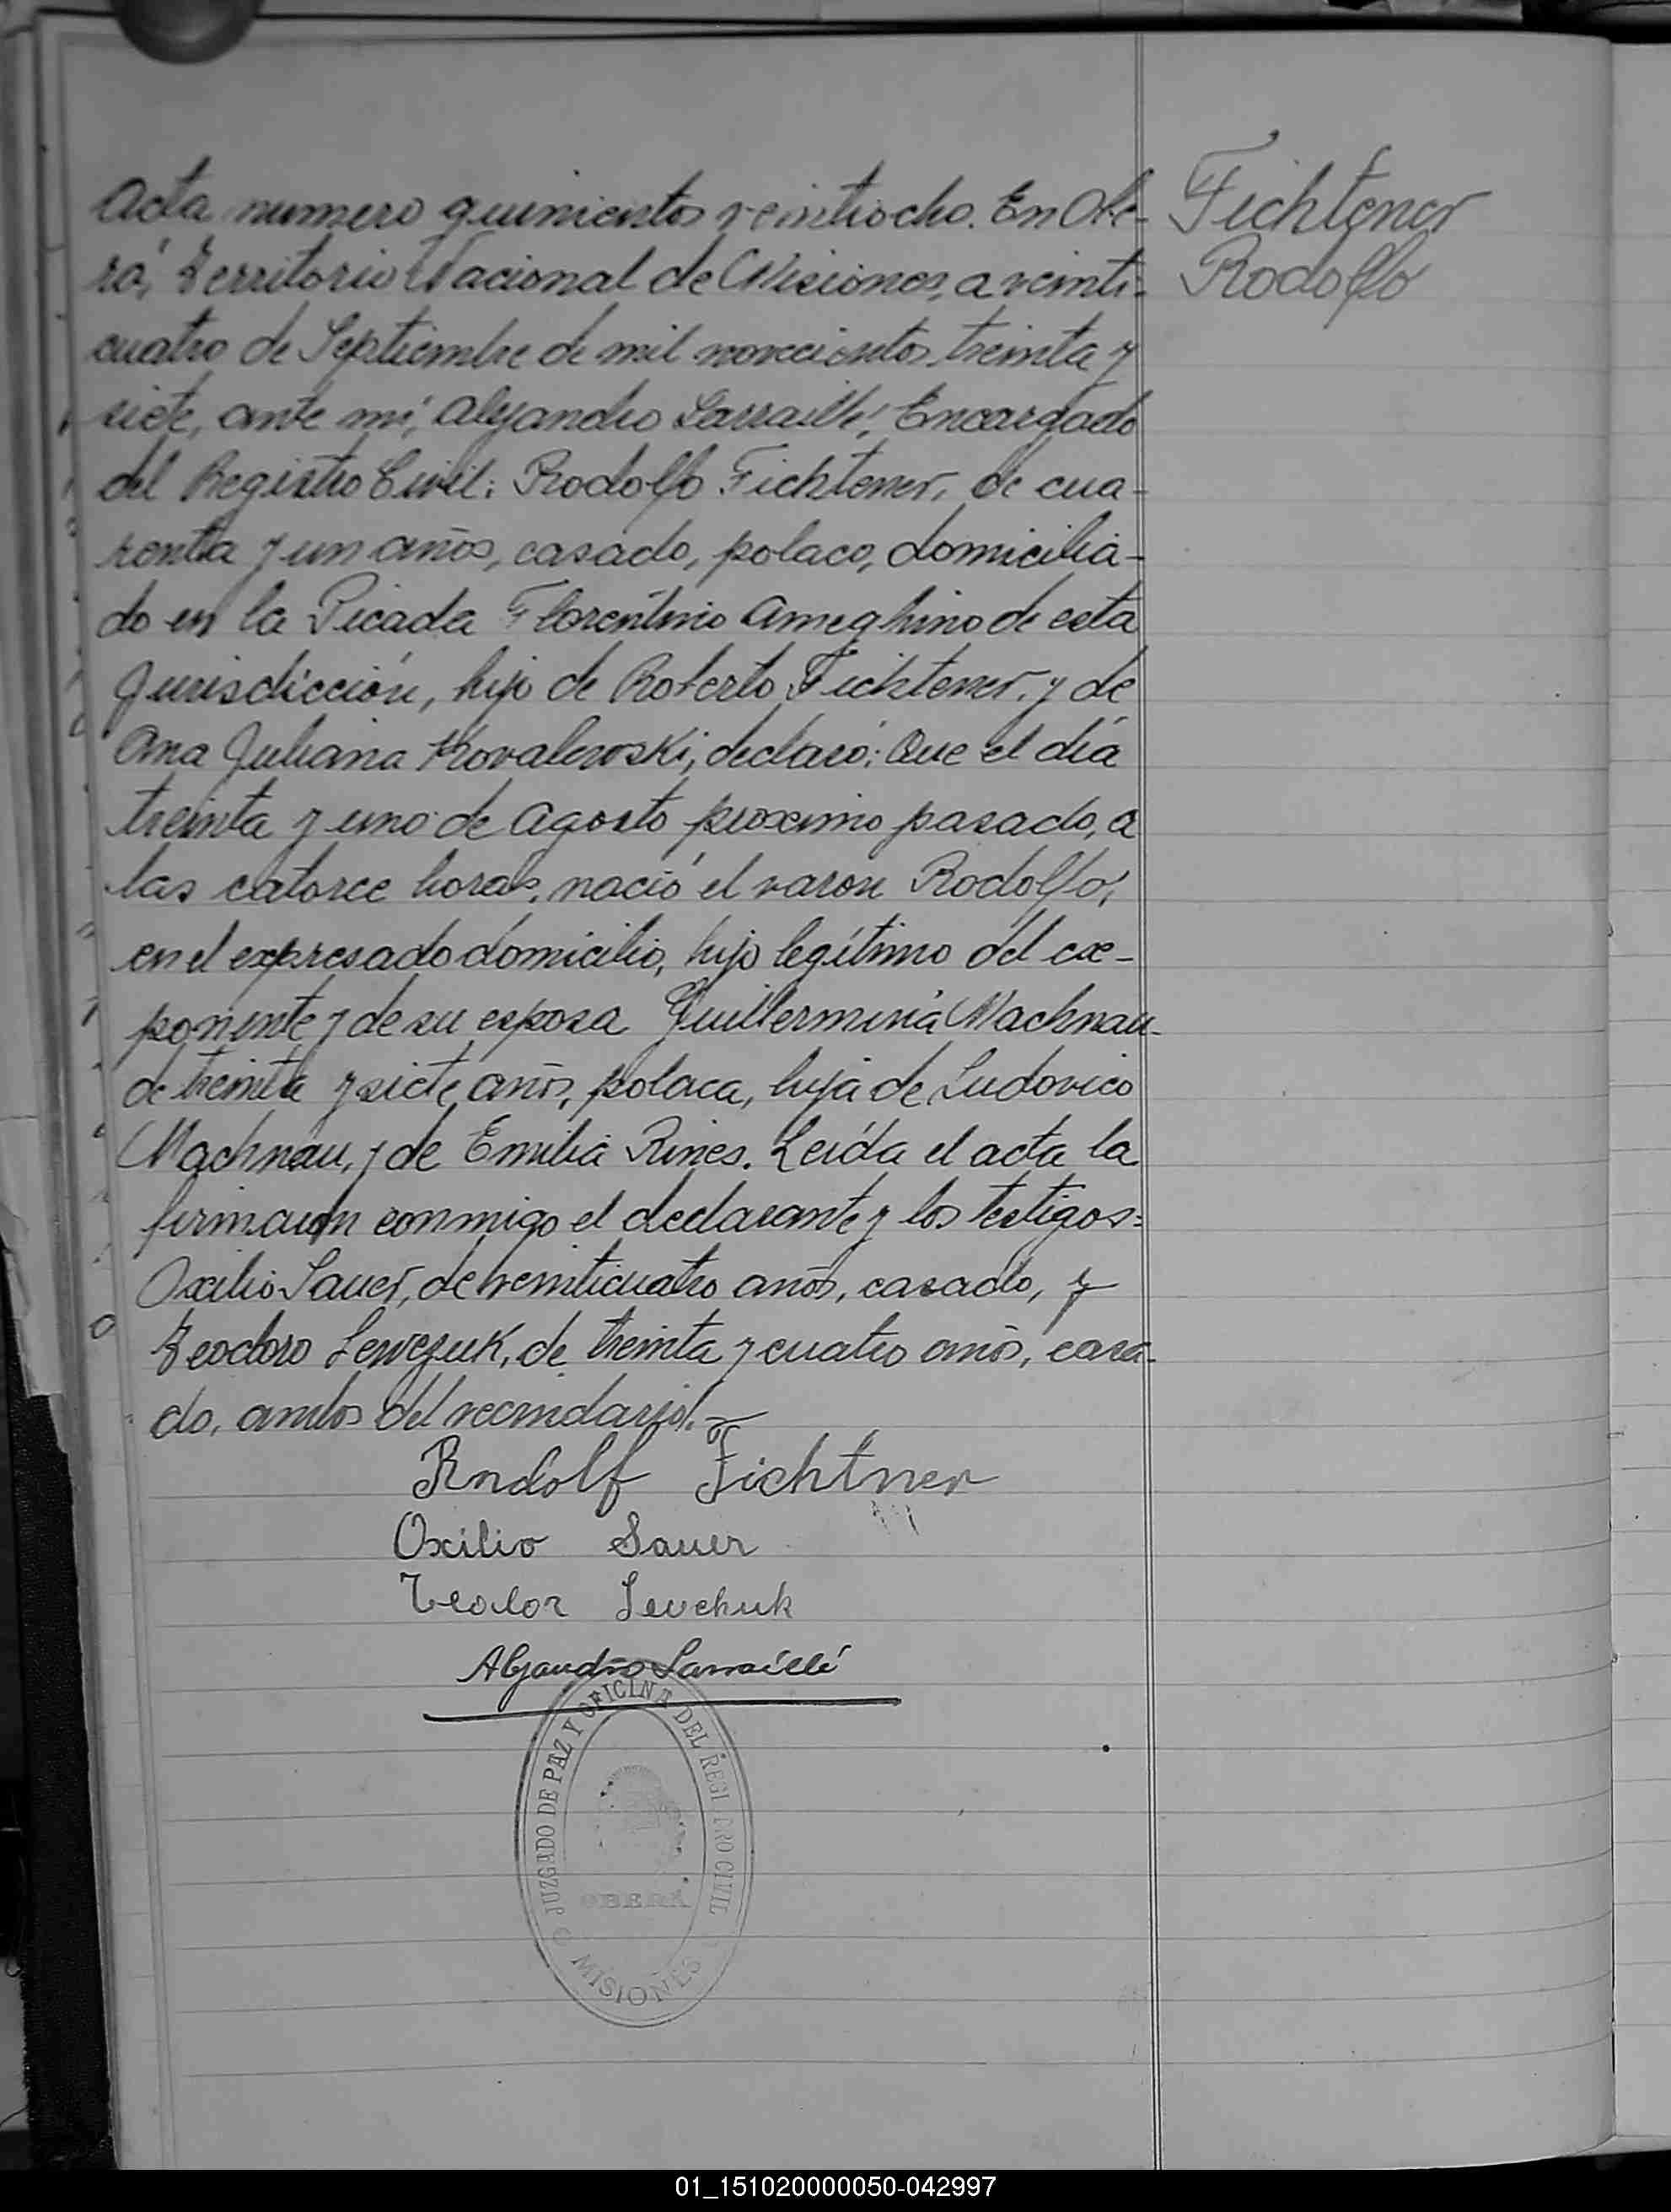 Acta numero quinientos veintiocho. En Obe-
rá, Territorio Nacional de Misiones, a veinti-
cuatro de Septiembre de mil novecientos treinta y
siete, ante mí, Alejandro Larraillé, Encargado
del Registro Civil: Rodolfo Fichtener, de cua-
renta y un años, casado, polaco, domicilia-
do en la Picada Florentino Ameghino de esta
Jurisdicción, hijo de Roberto Fichtener, y de
Ana Juliana Kovalewski; declaró: Que el día
treinta y uno de Agosto proximo pasado, a
las catorce horas, nació el varon Rodolfo,
en el expresado domicilio, hijo legítimo del ex-
ponente y de su esposa Guillermina Machnau
de treinta y siete años, polaca, hija de Ludovico
Machnau, y de Emilia Rines. Leída el acta la
firmaron conmigo el declarante y los testigos:
Oxilio Sauer, de veinticuatro años, casado, y
Teodoro Lewczuk, de treinta y cuatro años, casa-
do, ambos del vecindario.
Fichtener
Rodolfo
Rudolf Fichtner
Oxilio Sauer
Teodor Levchuk
Alejandro Larraillé
JUZGADO DE PAZ Y OFICINA DEL REGISTRO CIVIL
OBERÁ
MISIONES
01_151020000050-042997